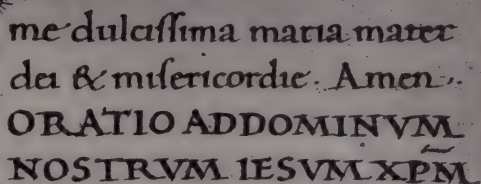 me dulcissima maria mater
dei & misericordie. Amen.
ORATIO AD DOMINVM
NOSTRVM IESVM XP̄M